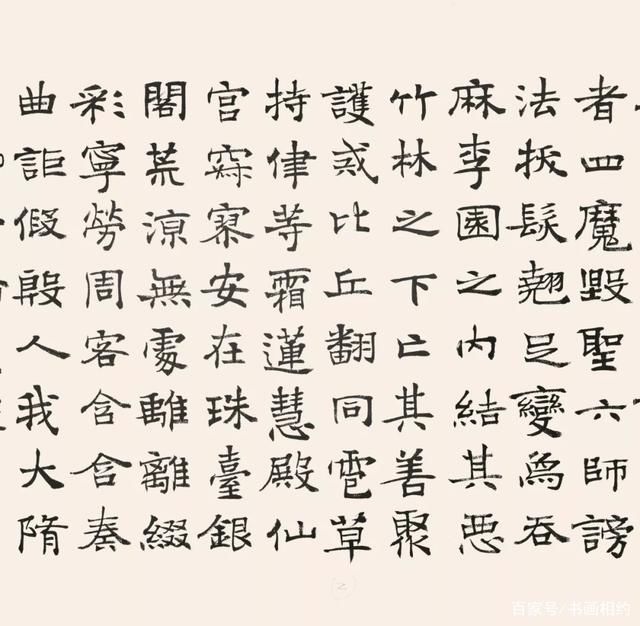 者四魔毀聖六師謗
法拔髮翹足變爲吞
麻李園之内結其惡
竹林之下亡其善聚
護戒比丘翻同雹草
持律等霜蓮慧殿仙
宫寂寥安在珠臺銀
閣荒凉無處離離綴
彩寧勞周客含含奏
曲詎假殷人我大隋
百家号/书画相约